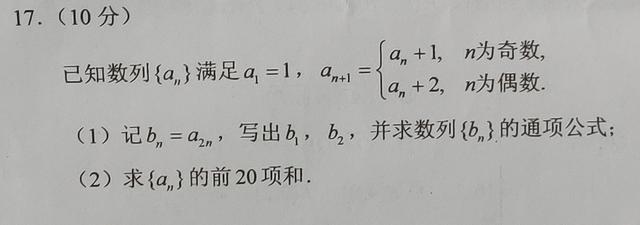 17.（10 分）
已知数列{aₙ}满足a₁=1，aₙ₊₁={aₙ+1, n为奇数,
aₙ+2, n为偶数.
（1）记bₙ=a₂ₙ，写出b₁，b₂，并求数列{bₙ}的通项公式；
（2）求{aₙ}的前20项和.